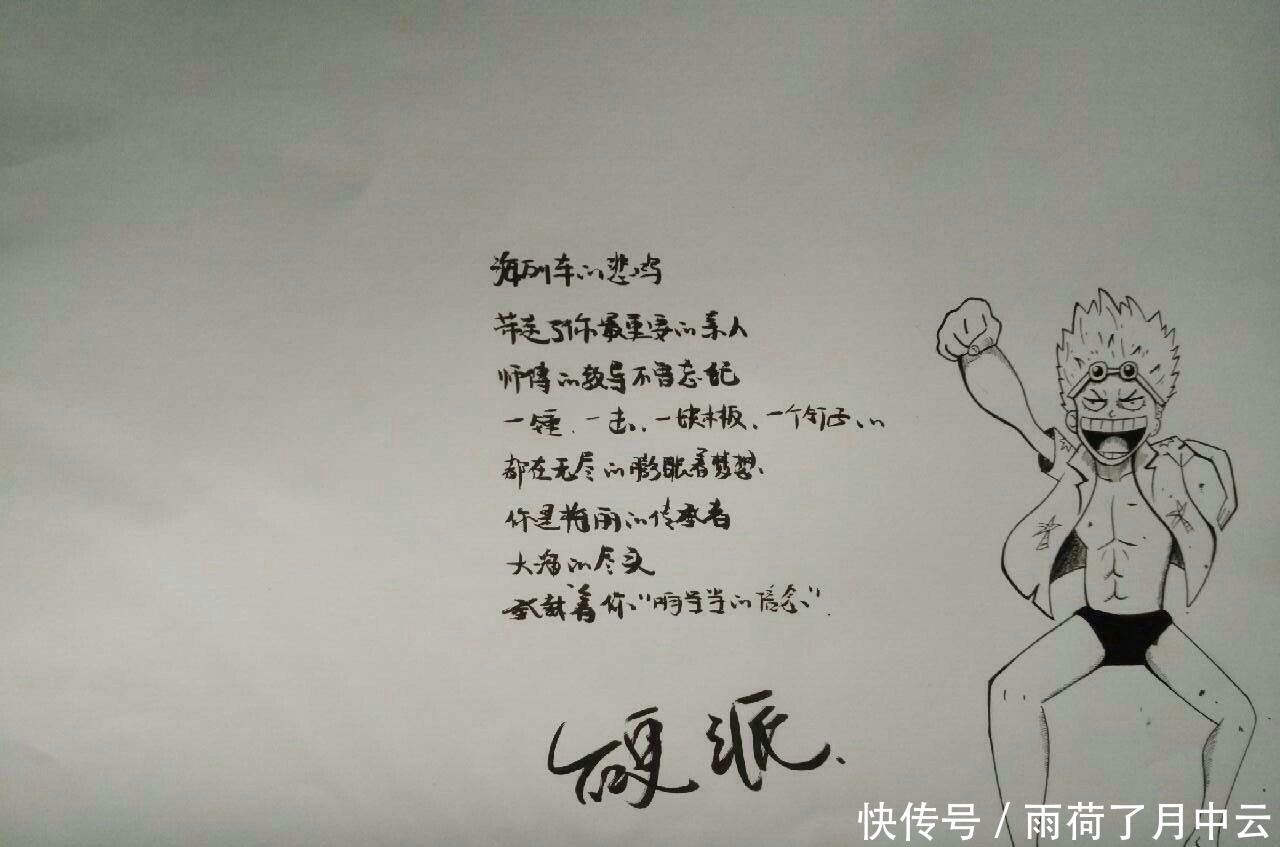 海列车的悲鸣
带走了你最重要的亲人
师傅的教导不曾忘记
一锤、一击、一块木板、一个钉子、的
都在无尽的膨胀着梦想、
你是梅丽的传承者
大海的尽头
承载着你"响当当的信念".
硬派.
快传号/雨荷了月中云